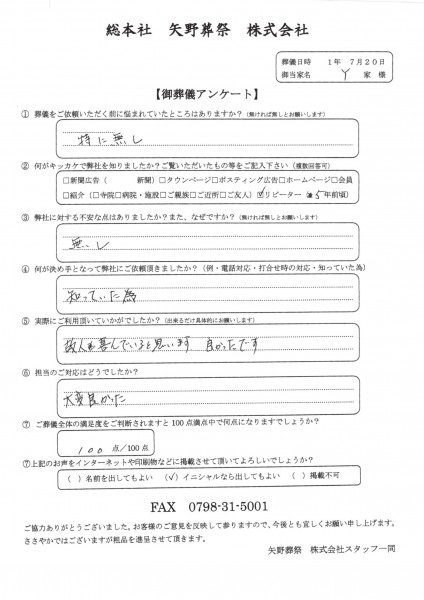 総本社　矢野葬祭　株式会社
葬儀日時　1年　7月20日
御当家名　Y　家　様
【御葬儀アンケート】
① 葬儀をご依頼いただく前に悩まれていたところはありますか？（無ければ無しとお願いします）
特に無し
② 何がキッカケで弊社を知りましたか？ご覧いただいたもの等をご記入下さい（複数回答可）
□新聞広告（　　　新聞）□タウンページ□ポスティング広告□ホームページ□会員
□紹介（□寺院□病院・施設□ご親族□ご近所□ご友人）☑リピーター（5年前頃）
③ 弊社に対する不安な点はありましたか？また、なぜですか？（無ければ無しとお願いします）
無し
④ 何が決め手となって弊社にご依頼頂きましたか？（例・電話対応・打合せ時の対応・知っていた為）
知っていた為
⑤ 実際にご利用頂いていかがでしたか？（出来るだけ具体的にお願いします）
故人も喜んでいると思います　良かったです
⑥ 担当のご対応はどうでしたか？
大変良かった
⑦ ご葬儀全体の満足度をご判断されますと100点満点中で何点になりますでしょうか？
100　点/100点
⑦上記のお声をインターネットや印刷物などに掲載させて頂いてよろしいでしょうか？
（　）名前を出してもよい　（✓）イニシャルなら出してもよい　（　）掲載不可
FAX　0798-31-5001
ご協力ありがとうございました。お客様のご意見を反映して参りますので、今後とも宜しくお願い申し上げます。
ささやかではございますが粗品を進呈させて頂きます。
矢野葬祭　株式会社スタッフ一同